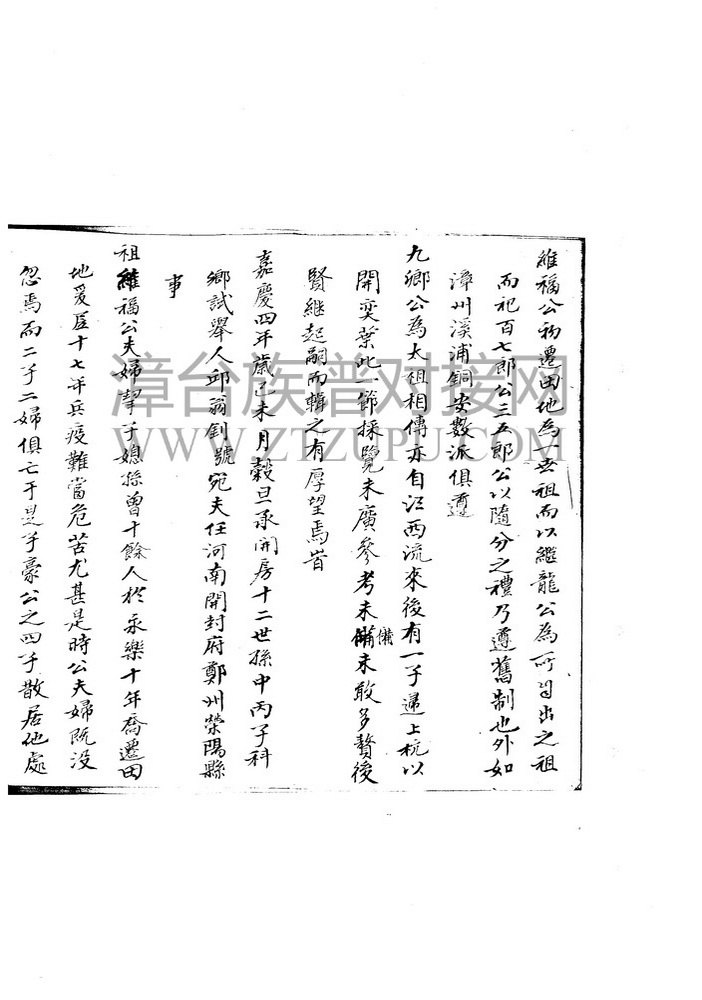 維福公初遷田地為一世祖而以繼龍公為所自出之祖
而祀百七郎公三五郎公以隨分之禮乃遵舊制也外如
漳州溪浦銅安數派俱遵
九鄉公為太祖相傳亦自江西流來後有一子遷上杭以
開奕葉此一節採覽未廣參考未備備未敢多贅後
賢繼起嗣而輯之有厚望焉旹
嘉慶四年歲己未月穀旦承開房十二世孫中丙子科
鄉試舉人邱翁釗號宛夫任河南開封府鄭州滎陽縣
事
祖維福公夫婦挈子媳孫曾十餘人於永樂十年喬遷田
地爰居十七年兵疫難當危苦尤甚是時公夫婦既没
忽焉而二子二婦俱亡于是子豪公之四子散居他處
漳台族譜对接网
WWW.ZTZUPU.COM